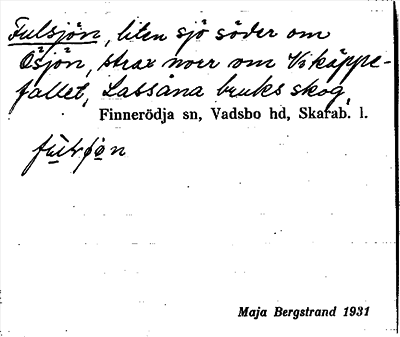 Fulsjön, liten sjö söder om
Ösjön, strax norr om Viskäppe-
fallet, Lassåna bruks skog,
Finnerödja sn, Vadsbo hd, Skarab. l.
Maja Bergstrand 1931